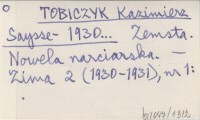 TOBICZYK Kazimierz
Saysse- 1930... Zemsta.
Nowela narciarska. —
Zima 2 (1930-1931), nr 1: